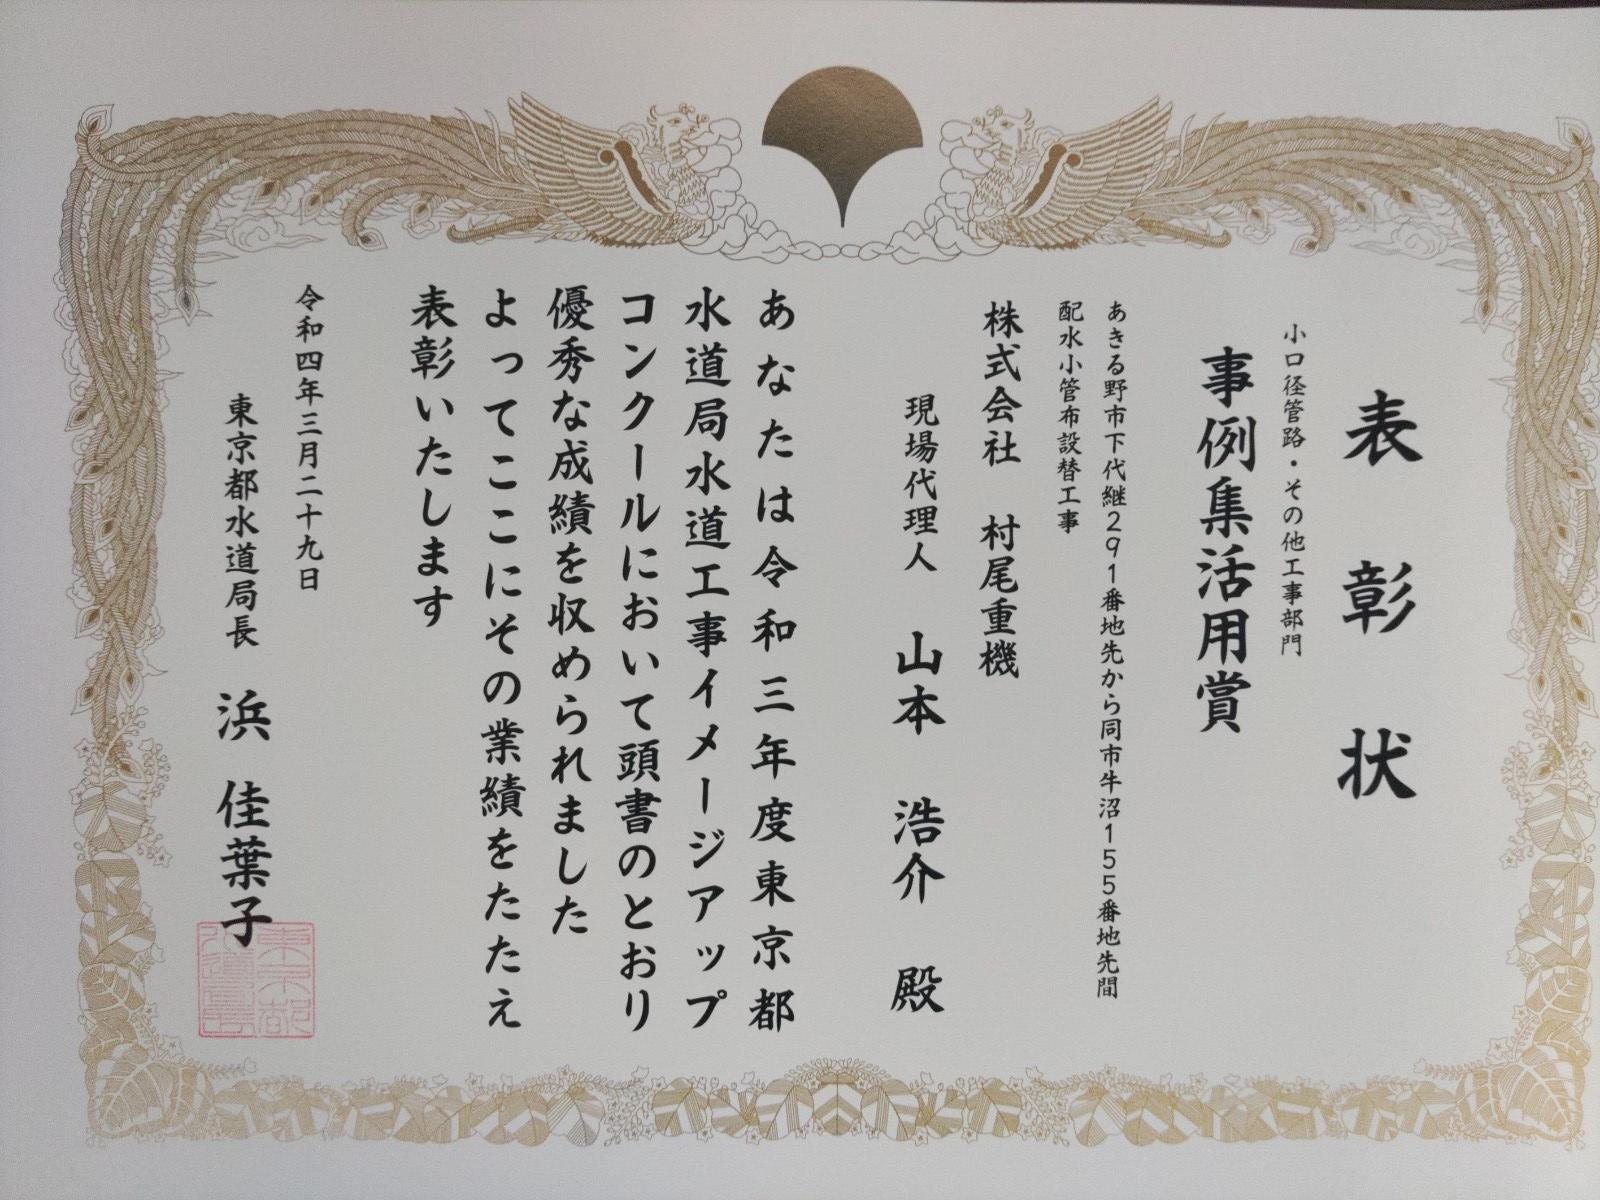 表彰状
小口径管路・その他工事部門
事例集活用賞
あきる野市下代継291番地先から同市牛沼155番地先間
配水小管布設替工事
株式会社 村尾重機
現場代理人 山本 浩介 殿
あなたは令和三年度東京都
水道局水道工事イメージアップ
コンクールにおいて頭書のとおり
優秀な成績を収められました
よってここにその業績をたたえ
表彰いたします
令和四年三月二十九日
東京都水道局長 浜 佳葉子